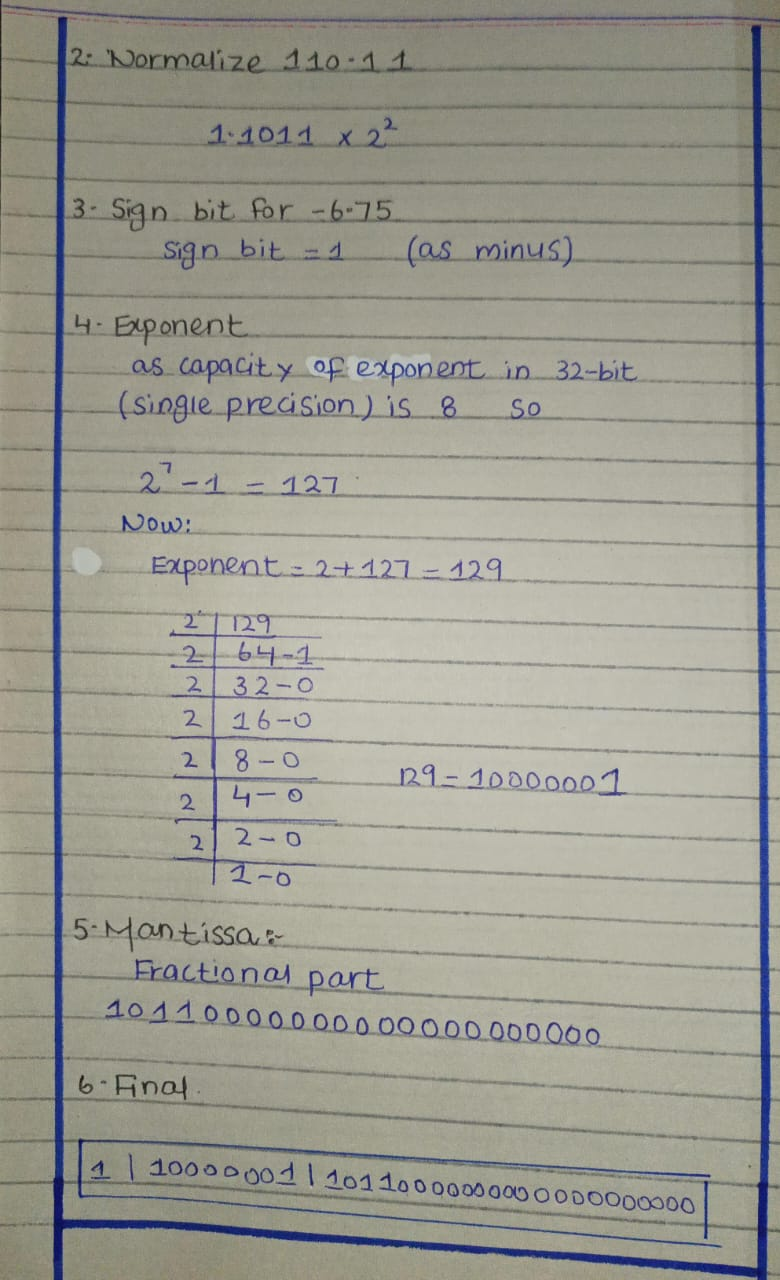 2: Normalize 110.11
1.1011 x 2²
3- Sign bit for -6.75
sign bit = 1 (as minus)
4- Exponent
as capacity of exponent in 32-bit
(single precision) is 8 so
2⁷-1 = 127
Now:
Exponent = 2+127 = 129
2 | 129
2 | 64-1
2 | 32-0
2 | 16-0
2 | 8-0
2 | 4-0
2 | 2-0
1-0
129 = 10000001
5- Mantissa:-
Fractional part
10110000000000000000000
6- Final.
1 | 10000001 | 10110000000000000000000